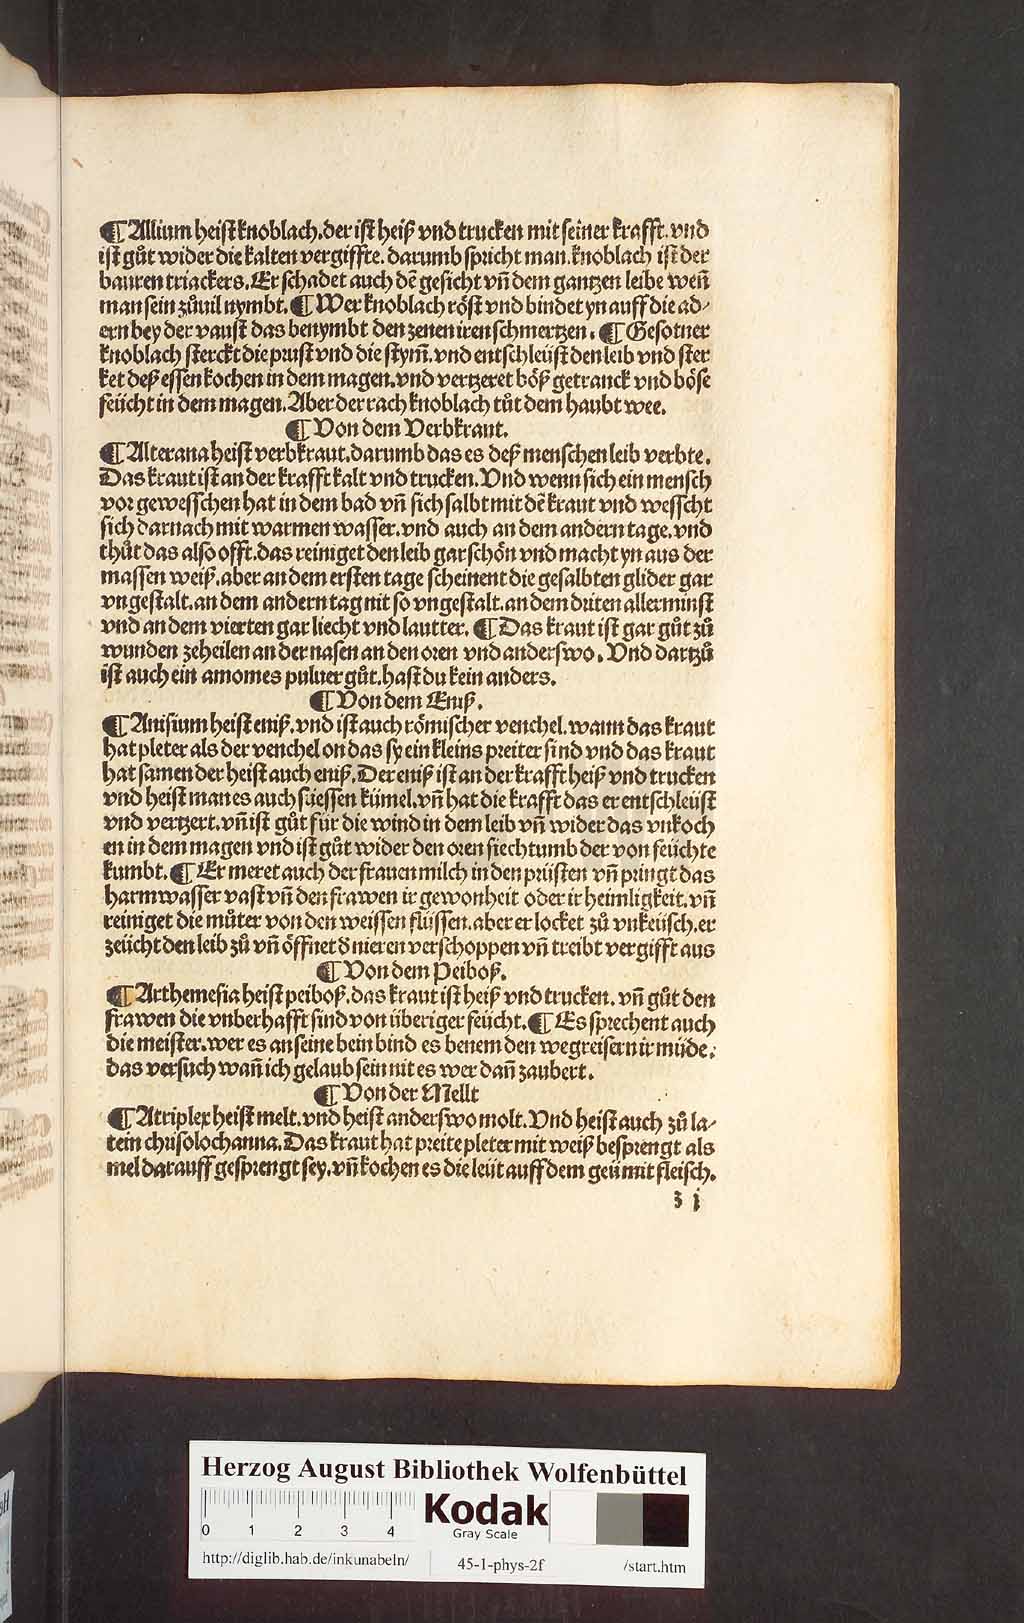 ¶ Allium heist knoblach. der ist heiß vnd trucken mit seiner krafft. vnd
ist gůt wider die kalten vergiffte. darumb spricht man. knoblach ist der
bauren triackers. Er schadet auch dē gesicht vñ dem gantzen leibe weñ
man sein zůuil nymbt. ¶ Wer knoblach röst vnd bindet yn auff die ad⸗
ern bey der vaust das benymbt den zenen iren schmertzen. ¶ Gesotner
knoblach sterckt die prust vnd die stym̄. vnd entschleüst den leib vnd ster
ket deß essen kochen in dem magen. vnd vertzeret böß getranck vnd böse
feücht in dem magen. Aber der rach knoblach tůt dem haubt wee.
¶ Von dem Verbkraut.
¶ Alterana heist verbkraut. darumb das es deß menschen leib verbte.
Das kraut ist an der krafft kalt vnd trucken. Vnd wenn sich ein mensch
vor gewesschen hat in dem bad vñ sich salbt mit dē kraut vnd wesscht
sich darnach mit warmen wasser. vnd auch an dem andern tage. vnd
thůt das also offt. das reiniget den leib gar schön vnd macht yn aus der
massen weiß. aber an dem ersten tage scheinent die gesalbten glider gar
vngestalt. an dem andern tag nit so vngestalt. an dem driten aller minst
vnd an dem vierten gar liecht vnd lautter. ¶ Das kraut ist gar gůt zů
wunden zeheilen an der nasen an den oren vnd anderswo. Vnd dartzů
ist auch ein amomes puluer gůt. hast du kein anders.
¶ Von dem Eniß.
¶ Anisium heist eniß. vnd ist auch römischer venchel. wann das kraut
hat pleter als der venchel on das sy ein kleins preiter sind vnd das kraut
hat samen der heist auch eniß. Der eniß ist an der krafft heiß vnd trucken
vnd heist man es auch süessen kümel. vñ hat die krafft das er entschleüst
vnd vertzert. vñ ist gůt für die wind in dem leib vñ wider das vnkoch
en in dem magen vnd ist gůt wider den oren siechtumb der von feüchte
kumbt. ¶ Er meret auch der frauen milch in den prüsten vñ pringt das
harmwasser vast vñ den frawen ir gewonheit oder ir heimligkeit. vñ
reiniget die můter von den weissen flüssen. aber er locket zů vnkeüsch. er
zeücht den leib zů vñ öffnet d nieren verschoppen vñ treibt vergifft aus
¶ Von dem Peiboß.
¶ Arthemesia heist peiboß. das kraut ist heiß vnd trucken. vñ gůt den
frawen die vnberhafft sind von überiger feücht. ¶ Es sprechent auch
die meister. wer es an seine bein bind es benem den wegreisern ir müde:
das versuch wañ ich gelaub sein nit es wer dañ zaubert.
¶ Von der Mellt
¶ Atriplex heist melt. vnd heist anderswo molt. Vnd heist auch zů la⸗
tein chrisolochanna. Das kraut hat preite pleter mit weiß besprengt als
mel darauff gesprengt sey. vñ kochen es die leüt auff dem geü mit fleisch.
z j
Herzog August Bibliothek Wolfenbüttel
0 1 2 3 4
Kodak
Gray Scale
http://diglib.hab.de/inkunabeln/ 45-1-phys-2f /start.htm